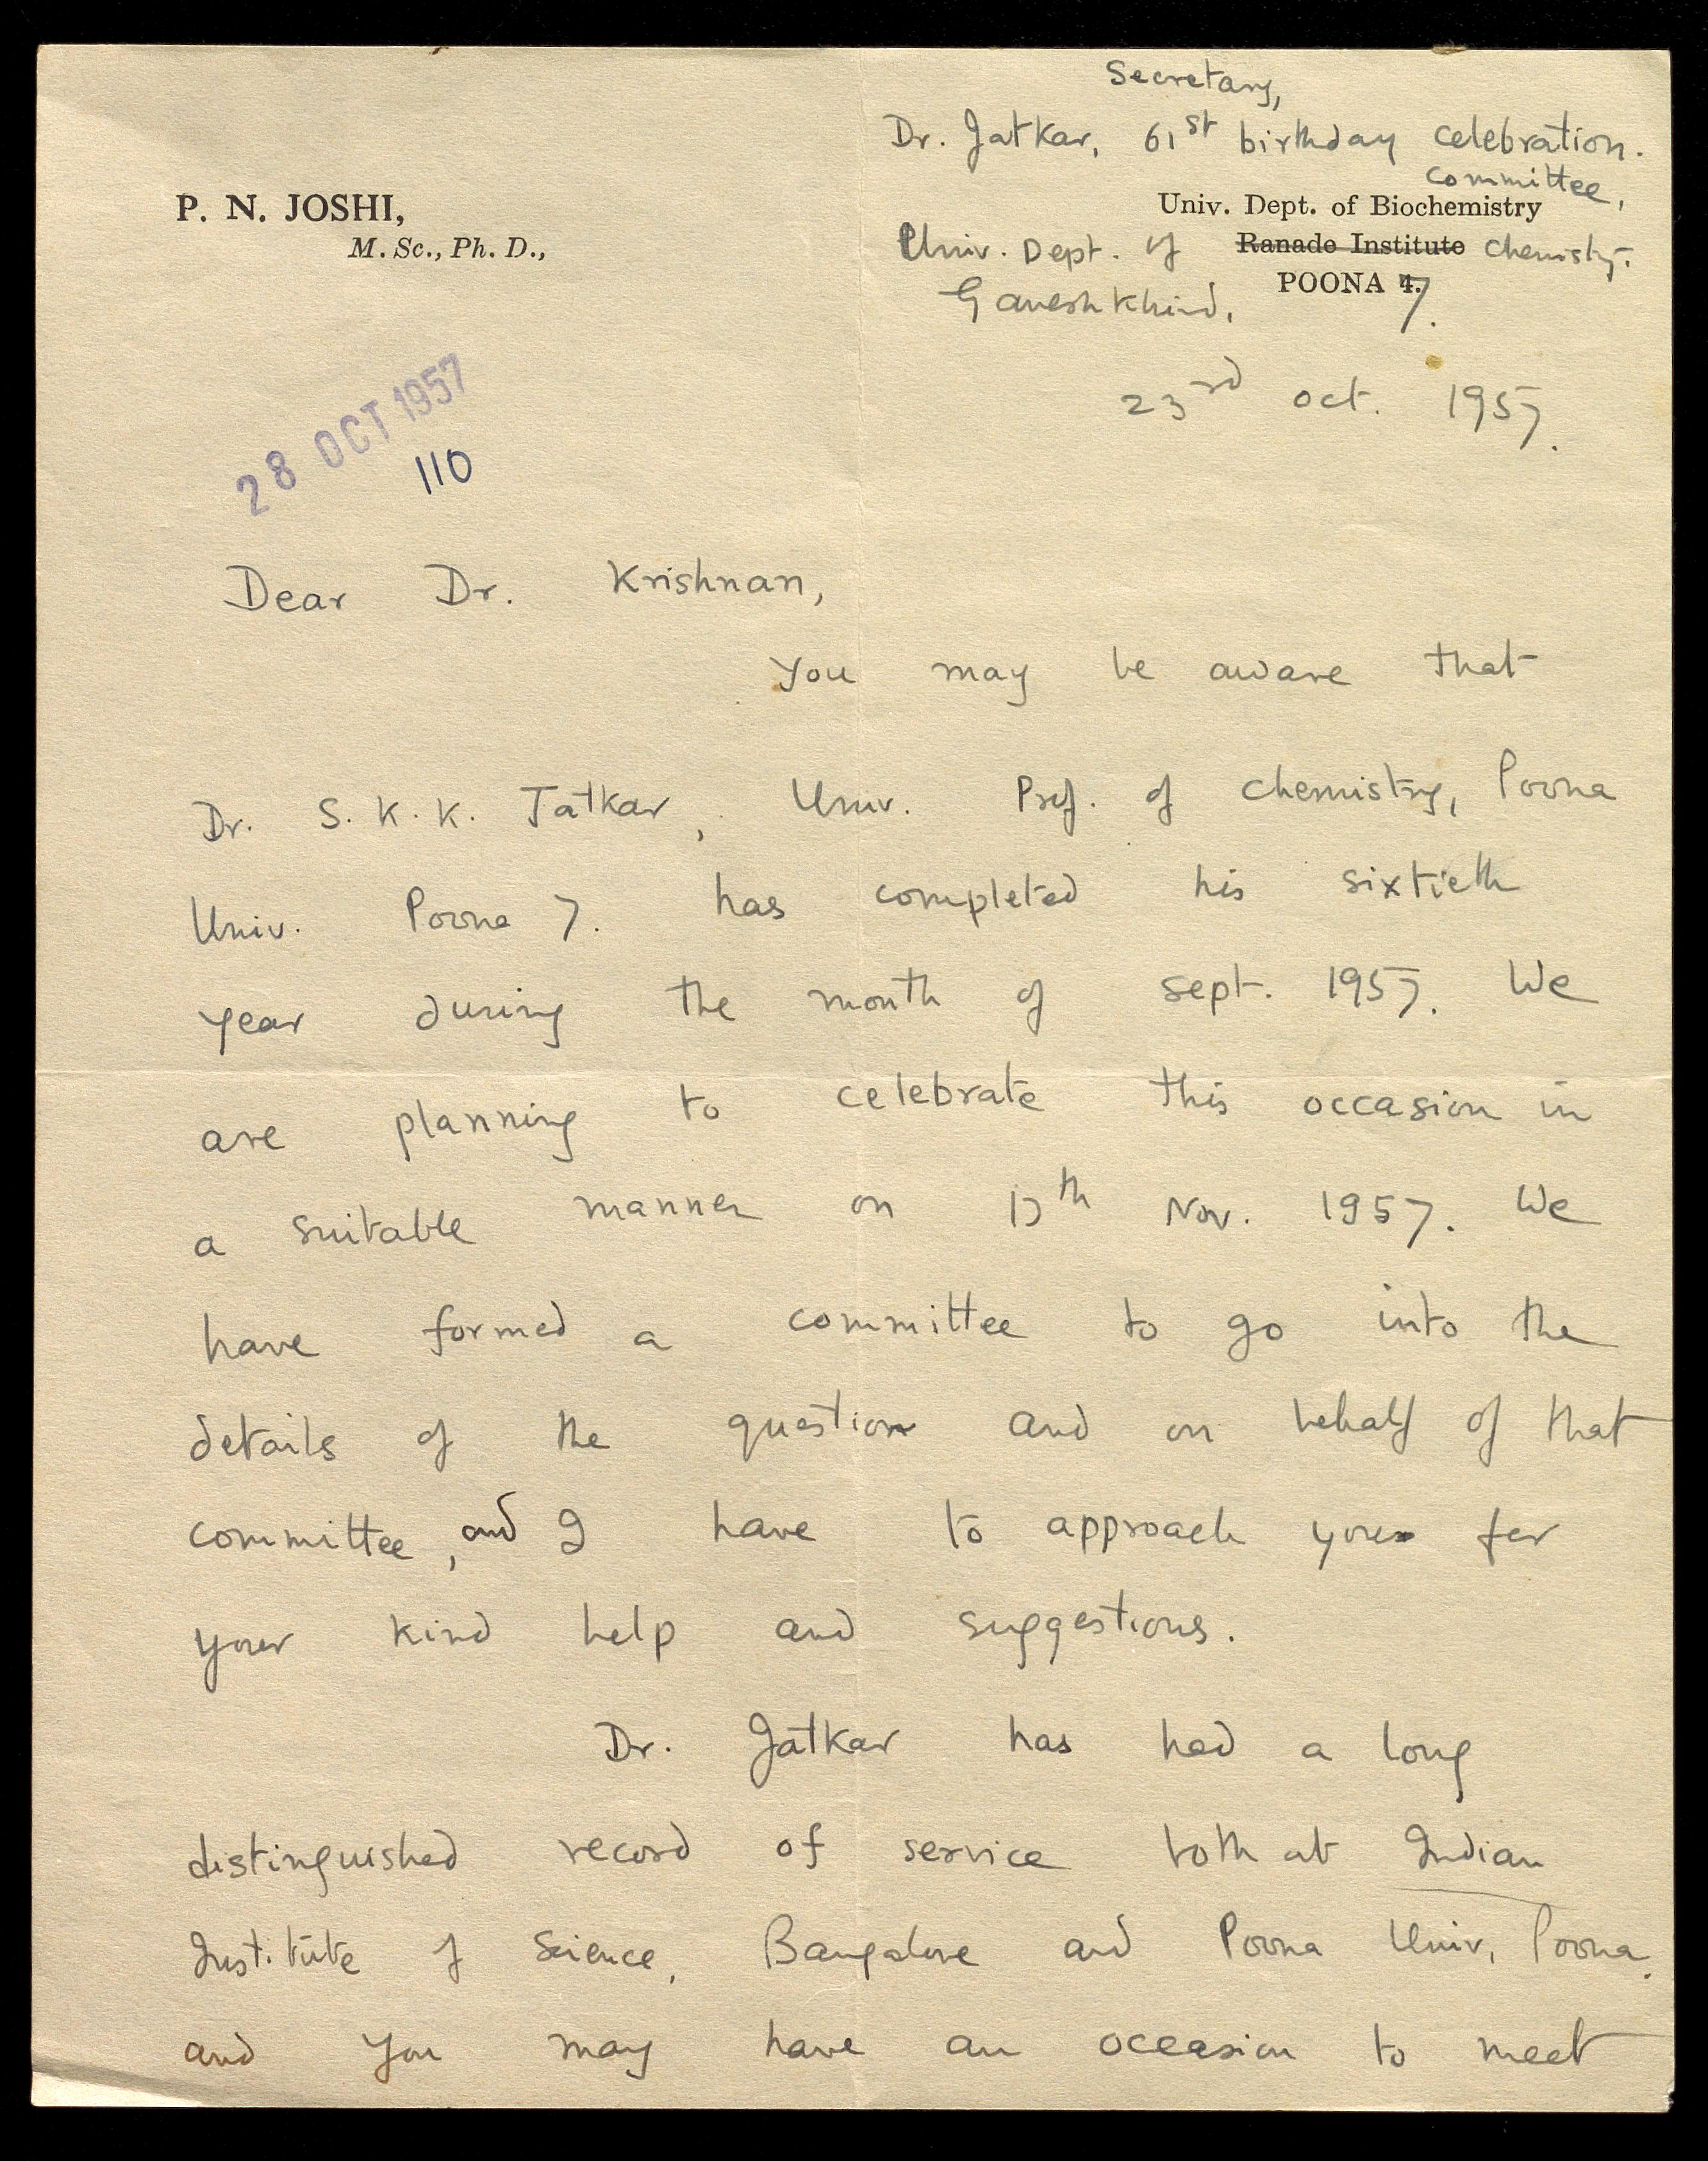 Secretary,
Dr. Jatkar, 61st birthday celebration.
committee,
P. N. JOSHI,
M. Sc., Ph. D.,
Univ. Dept. of Biochemistry
Univ. Dept. of Ranade Institute chemistry.
Ganeshkhind, POONA 4. 7.
23rd Oct. 1957.
28 OCT 1957
110
Dear Dr. Krishnan,
You may be aware that
Dr. S. K. K. Jatkar, Univ. Prof. of chemistry, Poona
Univ. Poona 7. has completed his sixtieth
year during the month of Sept. 1957. We
are planning to celebrate this occasion in
a suitable manner on 17th Nov. 1957. We
have formed a committee to go into the
details of the question and on behalf of that
committee, and I have to approach you for
your kind help and suggestions.
Dr. Jatkar has had a long
distinguished record of service both at Indian
Institute of Science, Bangalore and Poona Univ. Poona.
and you may have an occasion to meet